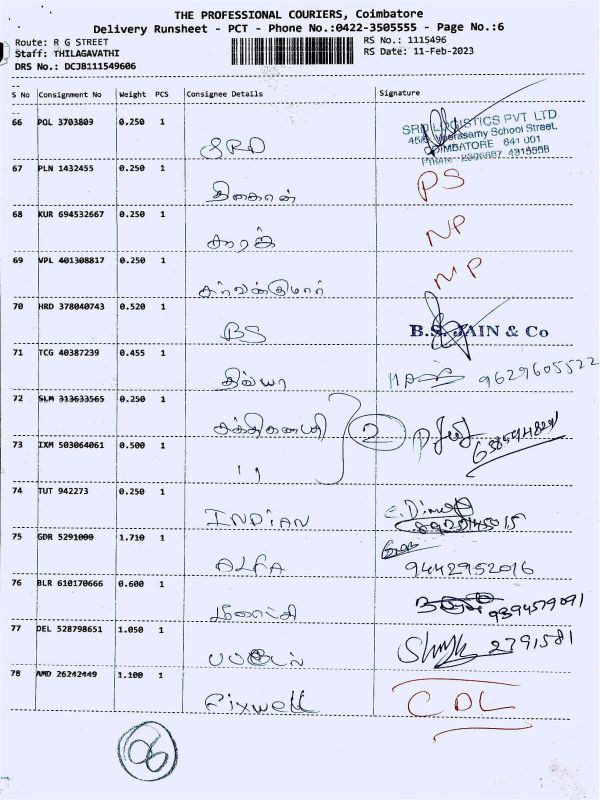 THE PROFESSIONAL COURIERS, Coimbatore
Delivery Runsheet - PCT - Phone No.:0422-3505555 - Page No.:6
Route: R G STREET RS No.: 1115496
Staff: THILAGAVATHI RS Date: 11-Feb-2023
DRS No.: DCJB111549606
S No Consignment No Weight PCS Consignee Details Signature
66 POL 3703809 0.250 1 SRD
SRD LOGISTICS PVT LTD
Veerasamy School Street,
COIMBATORE 641 001
67 PLN 1432455 0.250 1 PS
68 KUR 694532667 0.250 1 NP
69 VPL 401308817 0.250 1 சரவணக்குமார் NP
70 HRD 378040743 0.520 1 BS B.S. JAIN & Co
71 TCG 40387239 0.455 1 திவ்யா 9629605522
72 SLM 313633565 0.250 1 2
73 IXM 503064061 0.500 1 ''
74 TUT 942273 0.250 1 INDIAN
75 GDR 5291000 1.710 1 ALFA 9442952016
76 BLR 610170666 0.600 1 மீனாட்சி 9394579091
77 DEL 528798651 1.050 1 2791581
78 AMD 26242449 1.100 1 Fixwell CDL
06